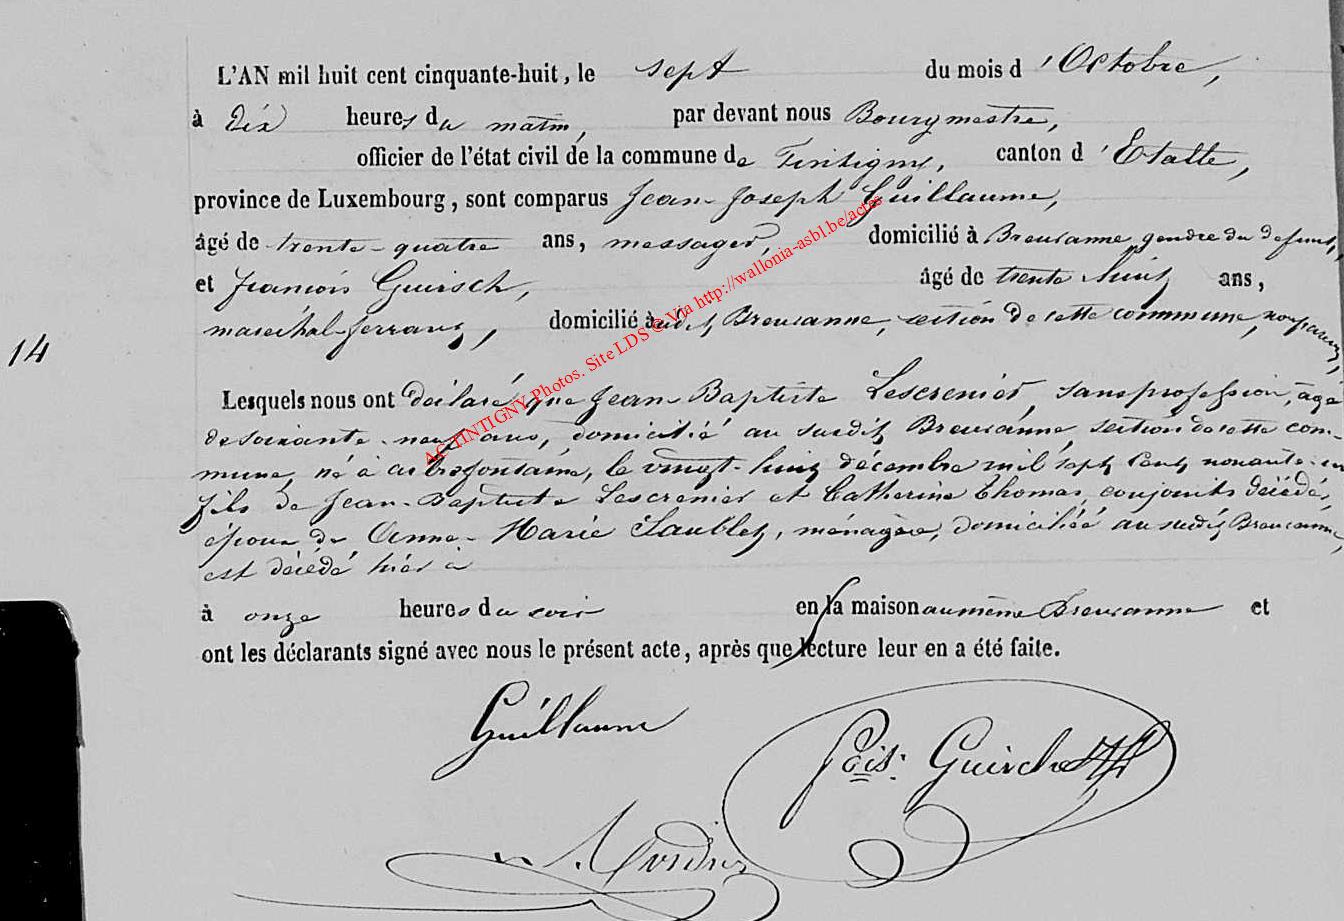 L'AN mil huit cent cinquante-huit, le sept du mois d'Octobre,
à Dix heures du matin, par devant nous Bourgmestre,
officier de l'état civil de la commune de Tintigny, canton d'Etalle,
province de Luxembourg, sont comparus Jean-Joseph Guillaume,
âgé de trente-quatre ans, messager, domicilié à Breuvanne, gendre du defunt,
et François Guirsch, âgé de trente huit ans,
maréchal-ferrant, domicilié audit Breuvanne, section de cette commune, non parent,
14
Lesquels nous ont déclaré que Jean-Baptiste Lescrenier, sans profession, âgé
de soixante-neuf ans, domicilié au susdit Breuvanne, section de cette com-
mune, né à le vingt-huit décembre mil sept cent nonante-un
fils de Jean-Baptiste Lescrenier et Catherine Thomas, conjoints décédés,
époux de Anne-Marie ménagère, domiciliée au susdit Breuvanne,
est décédé hier à
à onze heures du soir en la maison au même Breuvanne et
ont les déclarants signé avec nous le présent acte, après que lecture leur en a été faite.
Guillaume
Fçois: Guirsch
ACTINTIGNY Photos. Site LDS @ Via http://wallonia-asbl.be/actes